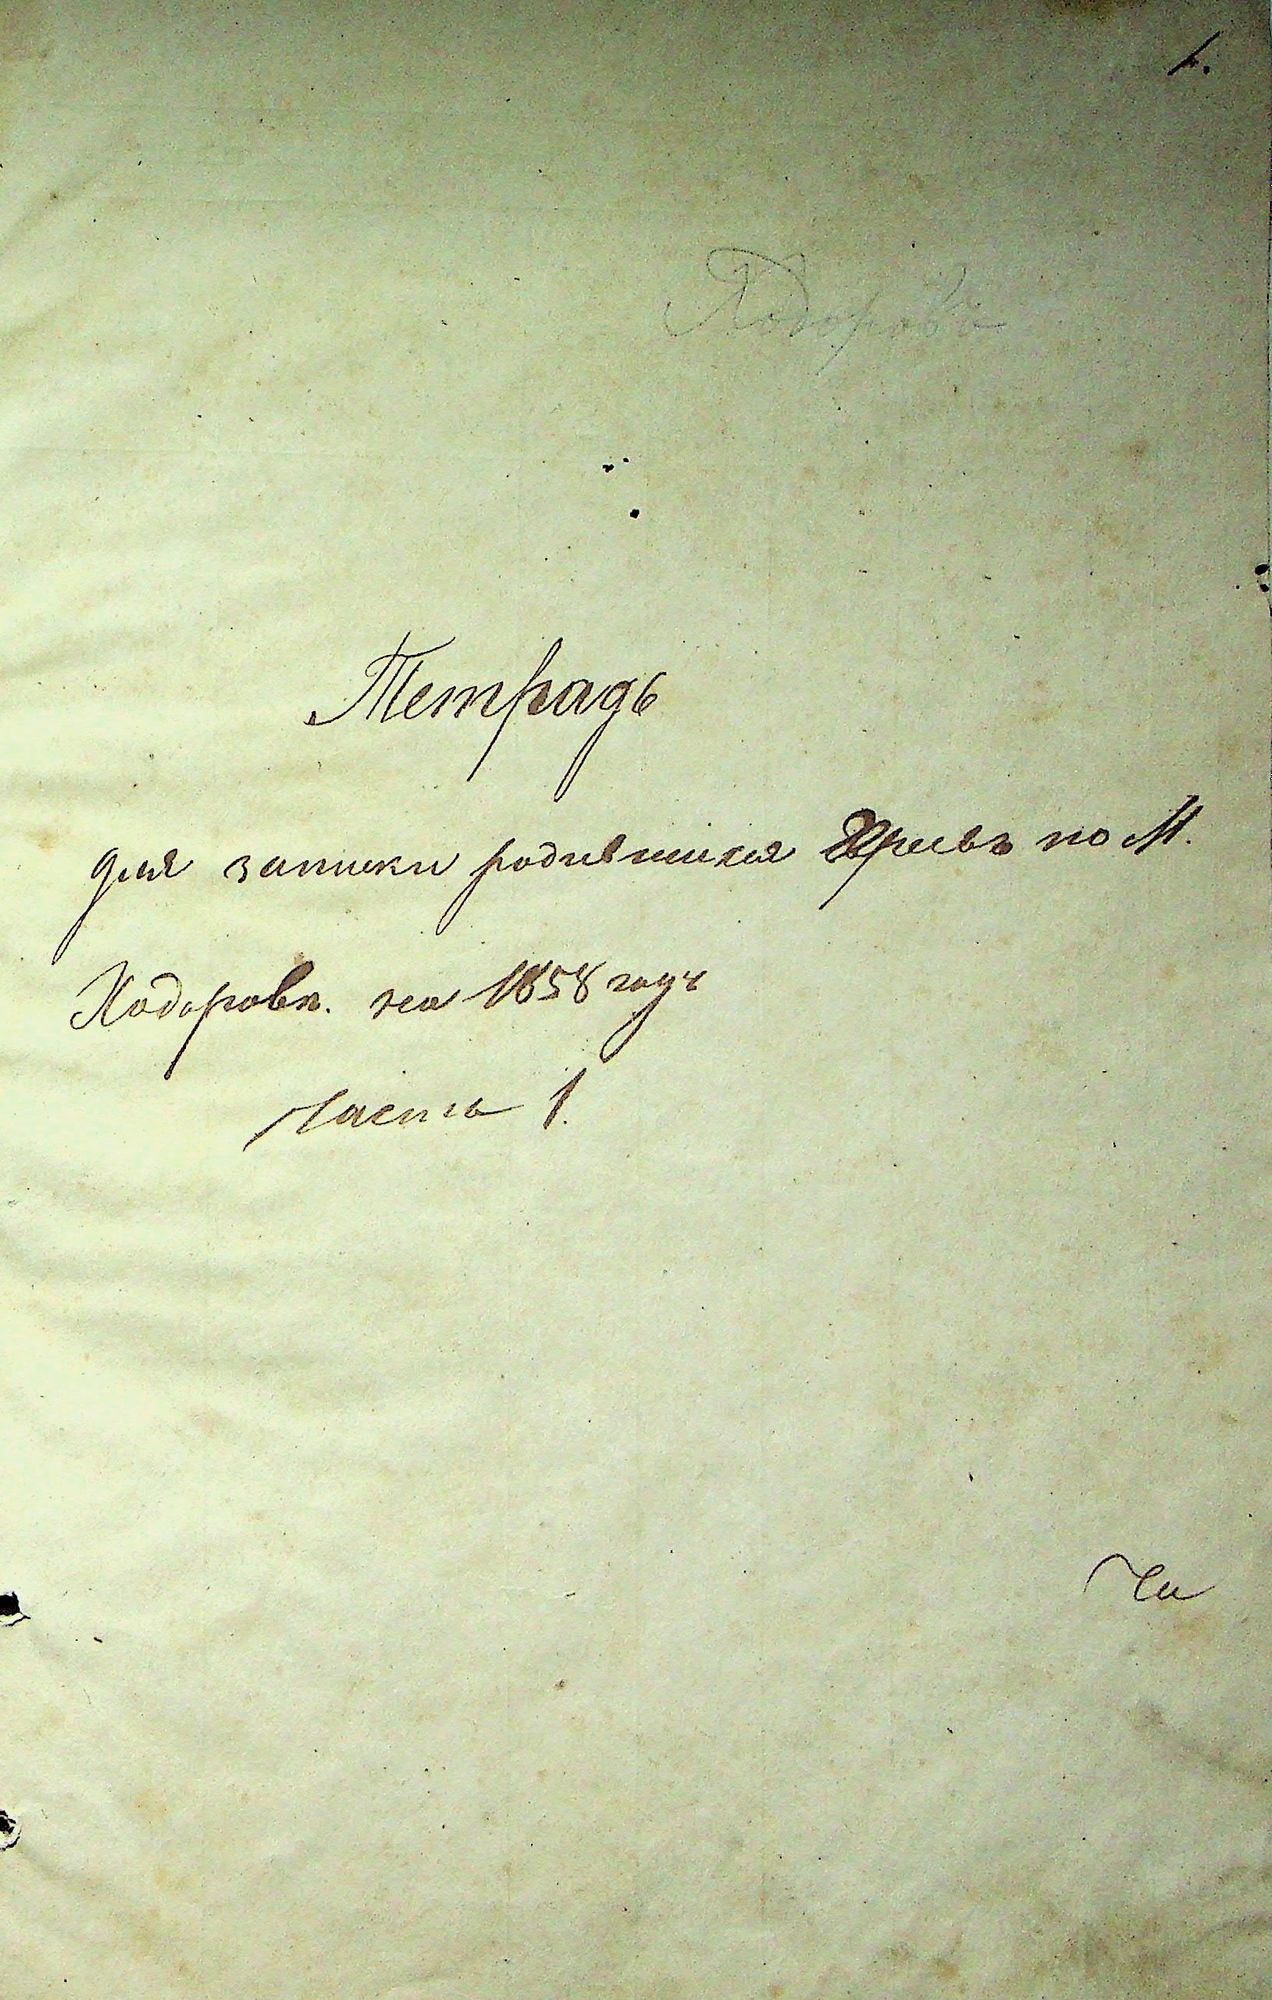 1.
Ходоровъ
Тетрадь
для записки родившихся Евреевъ по М.
Ходоровк. на 1858 годъ
Часть 1.